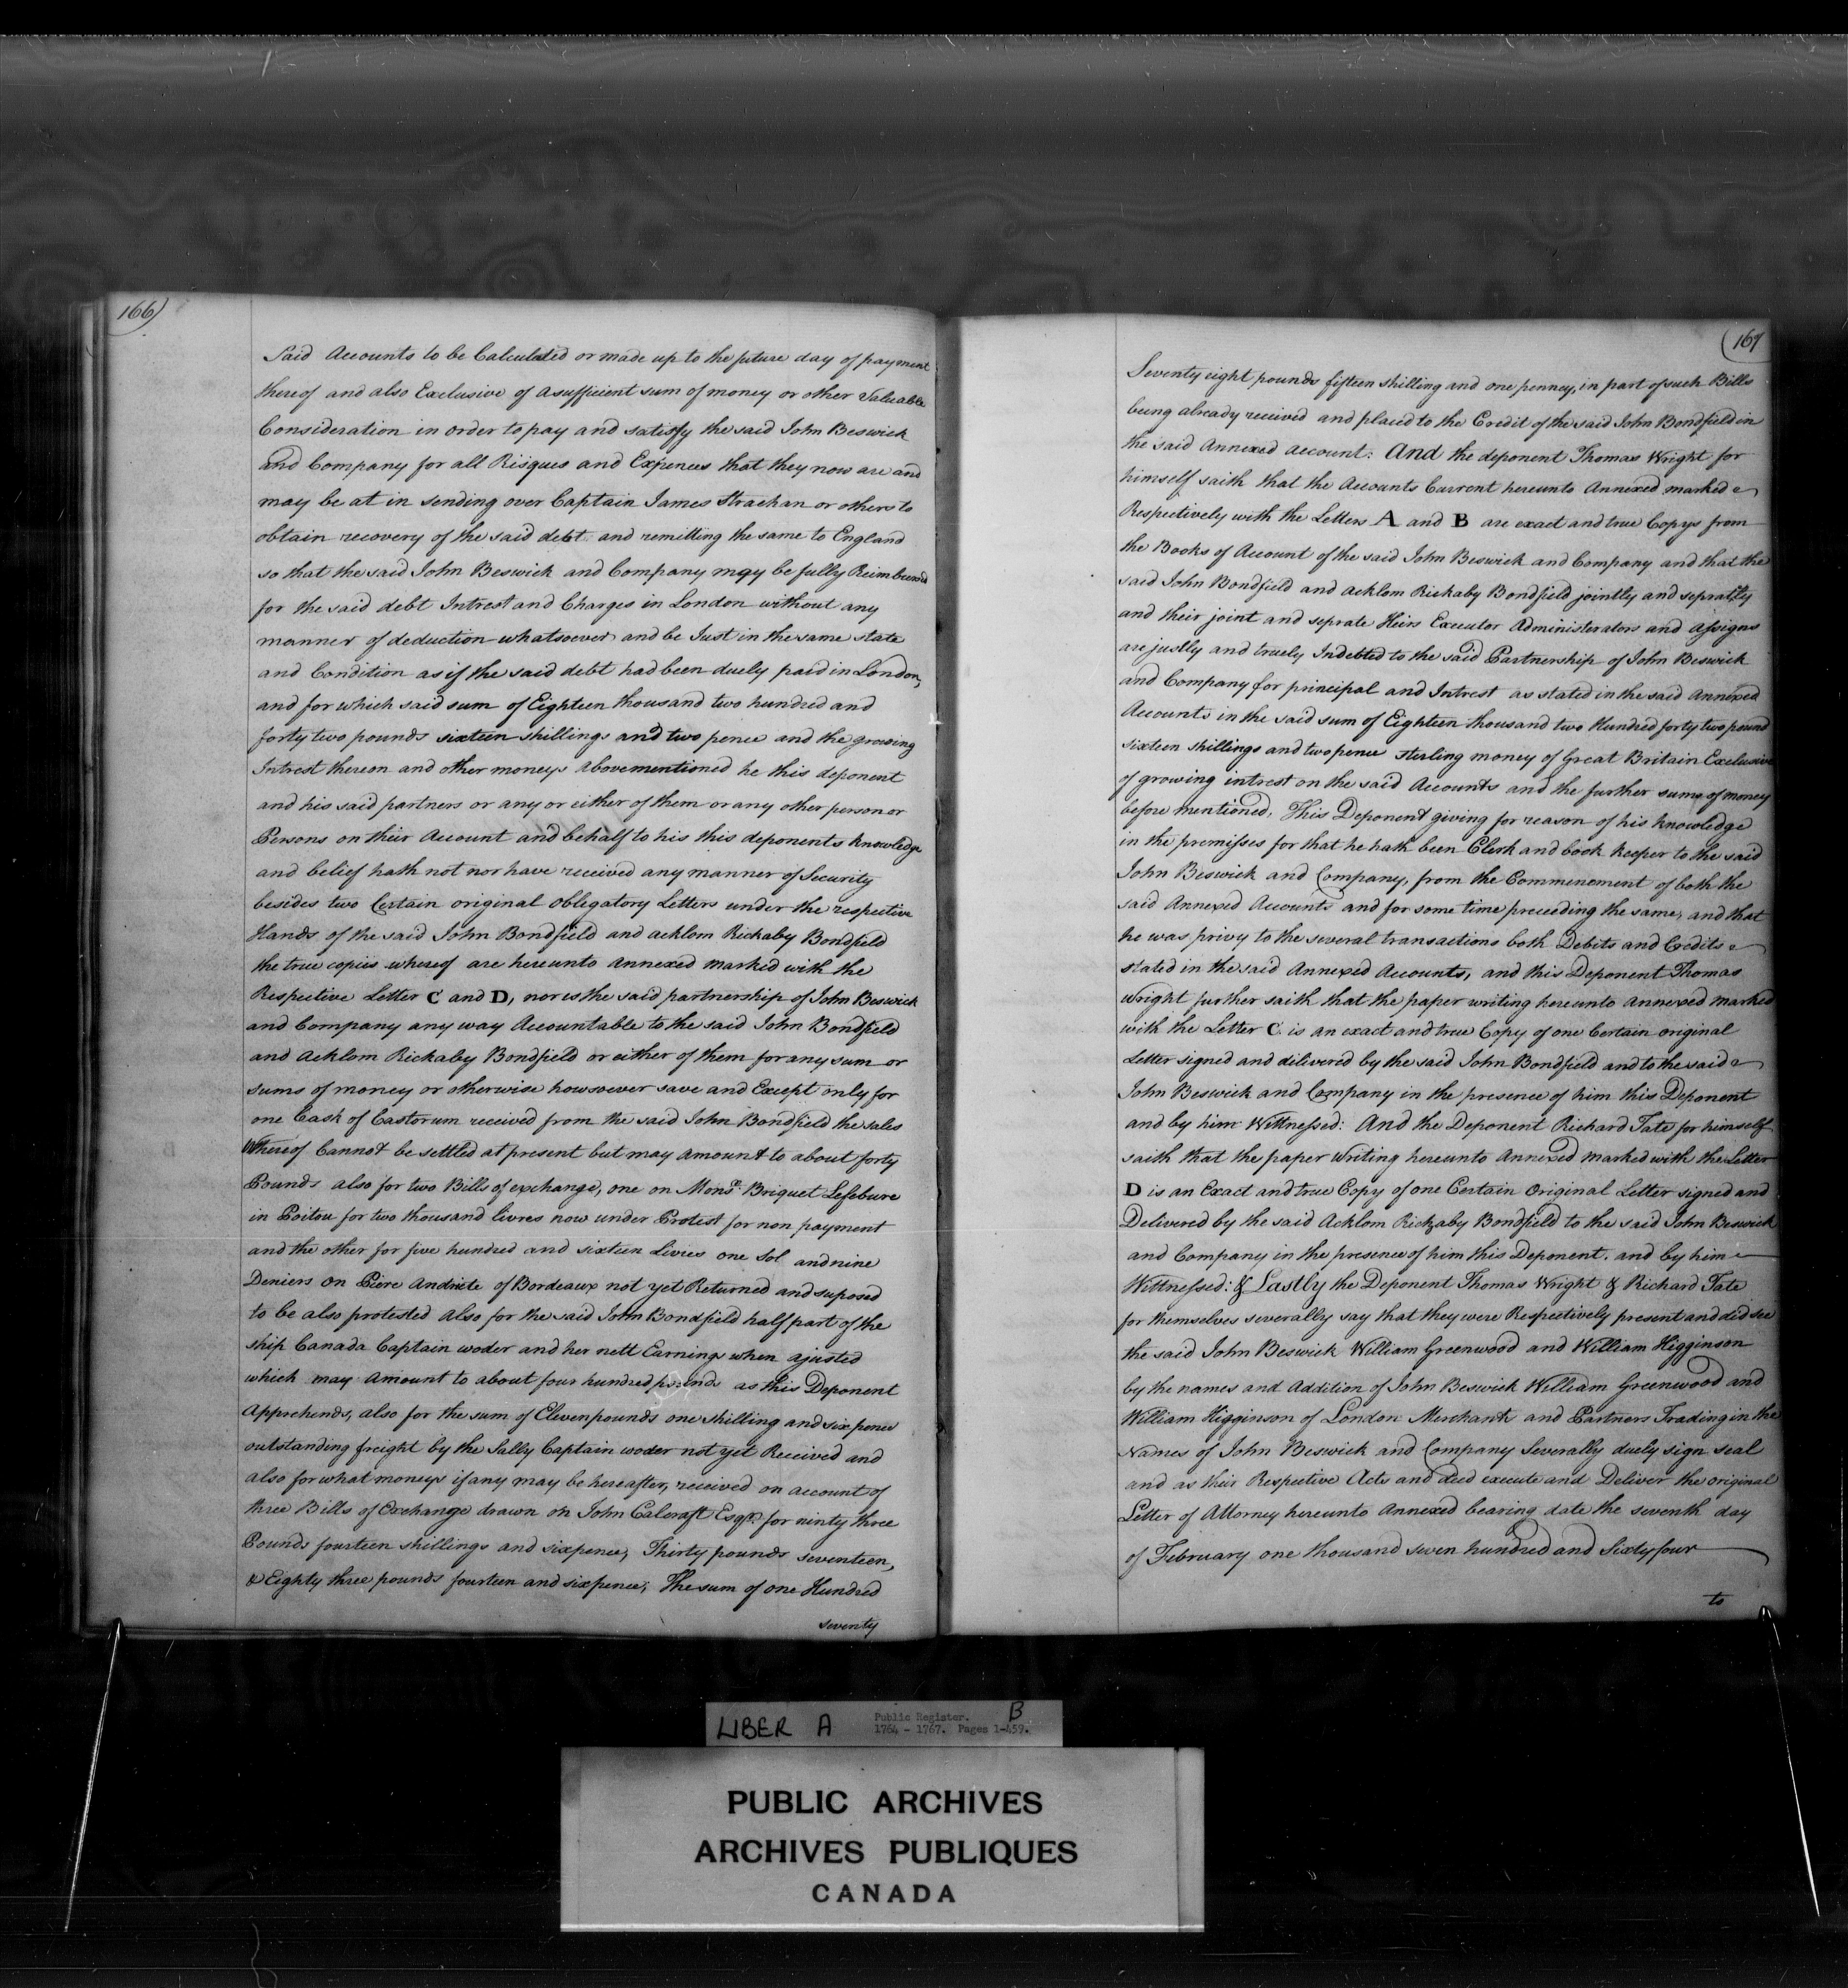 166
Said Accounts to be Calculated or made up to the future day of payment
thereof and also Exclusive of a sufficient sum of money or other Valuable
Consideration in order to pay and satisfy the said John Beswick
and Company for all Risques and Expences that they now are and
may be at in sending over Captain James Strachan or others to
obtain recovery of the said debt and remitting the same to England
so that the said John Beswick and Company may be fully Reimbursed
for the said debt Intrest and Charges in London without any
manner of deduction whatsoever and be Just in the same state
and Condition as if the said debt had been duely paid in London,
and for which said sum of Eighteen thousand two hundred and
forty two pounds sixteen shillings and two pence and the growing
Intrest thereon and other moneys abovementioned he this deponent
and his said partners or any or either of them or any other person or
Persons on their Account and behalf to his this deponents knowledge
and belief hath not nor have received any manner of Security
besides two Certain original Oblegatory Letters under the respective
Hands of the said John Bondfield and acklom Rickaby Bondfield
the true copies whereof are hereunto Annexed marked with the
Respective Letter C and D, nor is the said partnership of John Beswick
and Company any way Accountable to the said John Bondfield
and Acklom Rickaby Bondfield or either of them for any sum or
sums of money or otherwise howsoever save and Except only for
one Cask of Castorum received from the said John Bondfield the sales
Whereof Cannot be settled at present but may amount to about forty
Pounds also for two Bills of exchange, one on Monsr. Briquet Lefebure
in Poitou for two thousand livres now under Protest for non payment
and the other for five hundred and sixteen Livres one Sol and nine
Deniers on Piere Andriete of Bordeaux not yet Returned and suposed
to be also protested Also for the said John Bondfield half part of the
ship Canada Captain woder and her nett Earnings when ajusted
which may Amount to about four hundred pounds as this Deponent
Apprehends, also for the sum of Eleven pounds one shilling and six pence
outstanding freight by the Sally Captain woder not yet Received and
also for what moneys if any may be hereafter, received on account of
three Bills of Exchange drawn on John Calcraft Esqr. for ninty three
Pounds fourteen shillings and sixpence, Thirty pounds seventeen,
& Eighty three pounds fourteen and sixpence; The sum of one Hundred
seventy
167
Seventy eight pounds fifteen shilling and one penney, in part of such Bills
being already received and placed to the Credit of the said John Bondfield in
the said Annexed account: And the deponent Thomas Wright for
himself saith that the Accounts Current hereunto Annexed marked
Respectively with the Letters A and B are exact and true Copys from
the Books of Account of the said John Beswick and Company and that the
said John Bondfield and Acklom Rickaby Bondfield jointly and sepratly
and their joint and seprate Heirs Executor Administerators and Assigns
are justly and truely Indebted to the said Partnership of John Beswick
and Company for principal and Intrest as stated in the said Annexed
Accounts in the said sum of Eighteen thousand two Hundred forty two pound
sixteen shillings and two pence sterling money of Great Britain Exclusive
of growing intrest on the said Accounts and the further sums of money
before mentioned, This Deponent giving for reason of his knowledge
in the premisses for that he hath been Clerk and book keeper to the said
John Beswick and Company, from the Commencment of both the
said Annexed Accounts and for some time preceeding the same, and that
he was privy to the several transactions both Debits and Credits
stated in the said Annexed Accounts, and this Deponent Thomas
Wright further saith that the paper writing hereunto annexed marked
with the Letter C is an exact and true Copy of one Certain original
Letter signed and delivered by the said John Bondfield and to the said
John Beswick and Company in the presence of him this Deponent
and by him Wittnessed: And the Deponent Richard Tate for himself
saith that the paper Writing hereunto Annexed marked with the Letter
D is an Exact and true Copy of one Certain Original Letter signed and
Delivered by the said Acklom Rickaby Bondfield to the said John Beswick
and Company in the presence of him this Deponent. and by him
Wittnessed: & Lastly the Deponent Thomas Wright & Richard Tate
for themselves severally say that they were Respectively present and did see
the said John Beswick William Greenwood and William Higginson
by the names and Addition of John Beswick William Greenwood and
William Higginson of London Merchants and Partners Trading in the
Names of John Beswick and Company Severally duely sign seal
and as their Respective Acts and deed execute and Deliver the original
Letter of Attorney hereunto Annexed bearing date the seventh day
of February one thousand seven hundred and Sixty four
to
LIBER A
Public Register. B
1764 - 1767. Pages 1-459.
PUBLIC ARCHIVES
ARCHIVES PUBLIQUES
CANADA